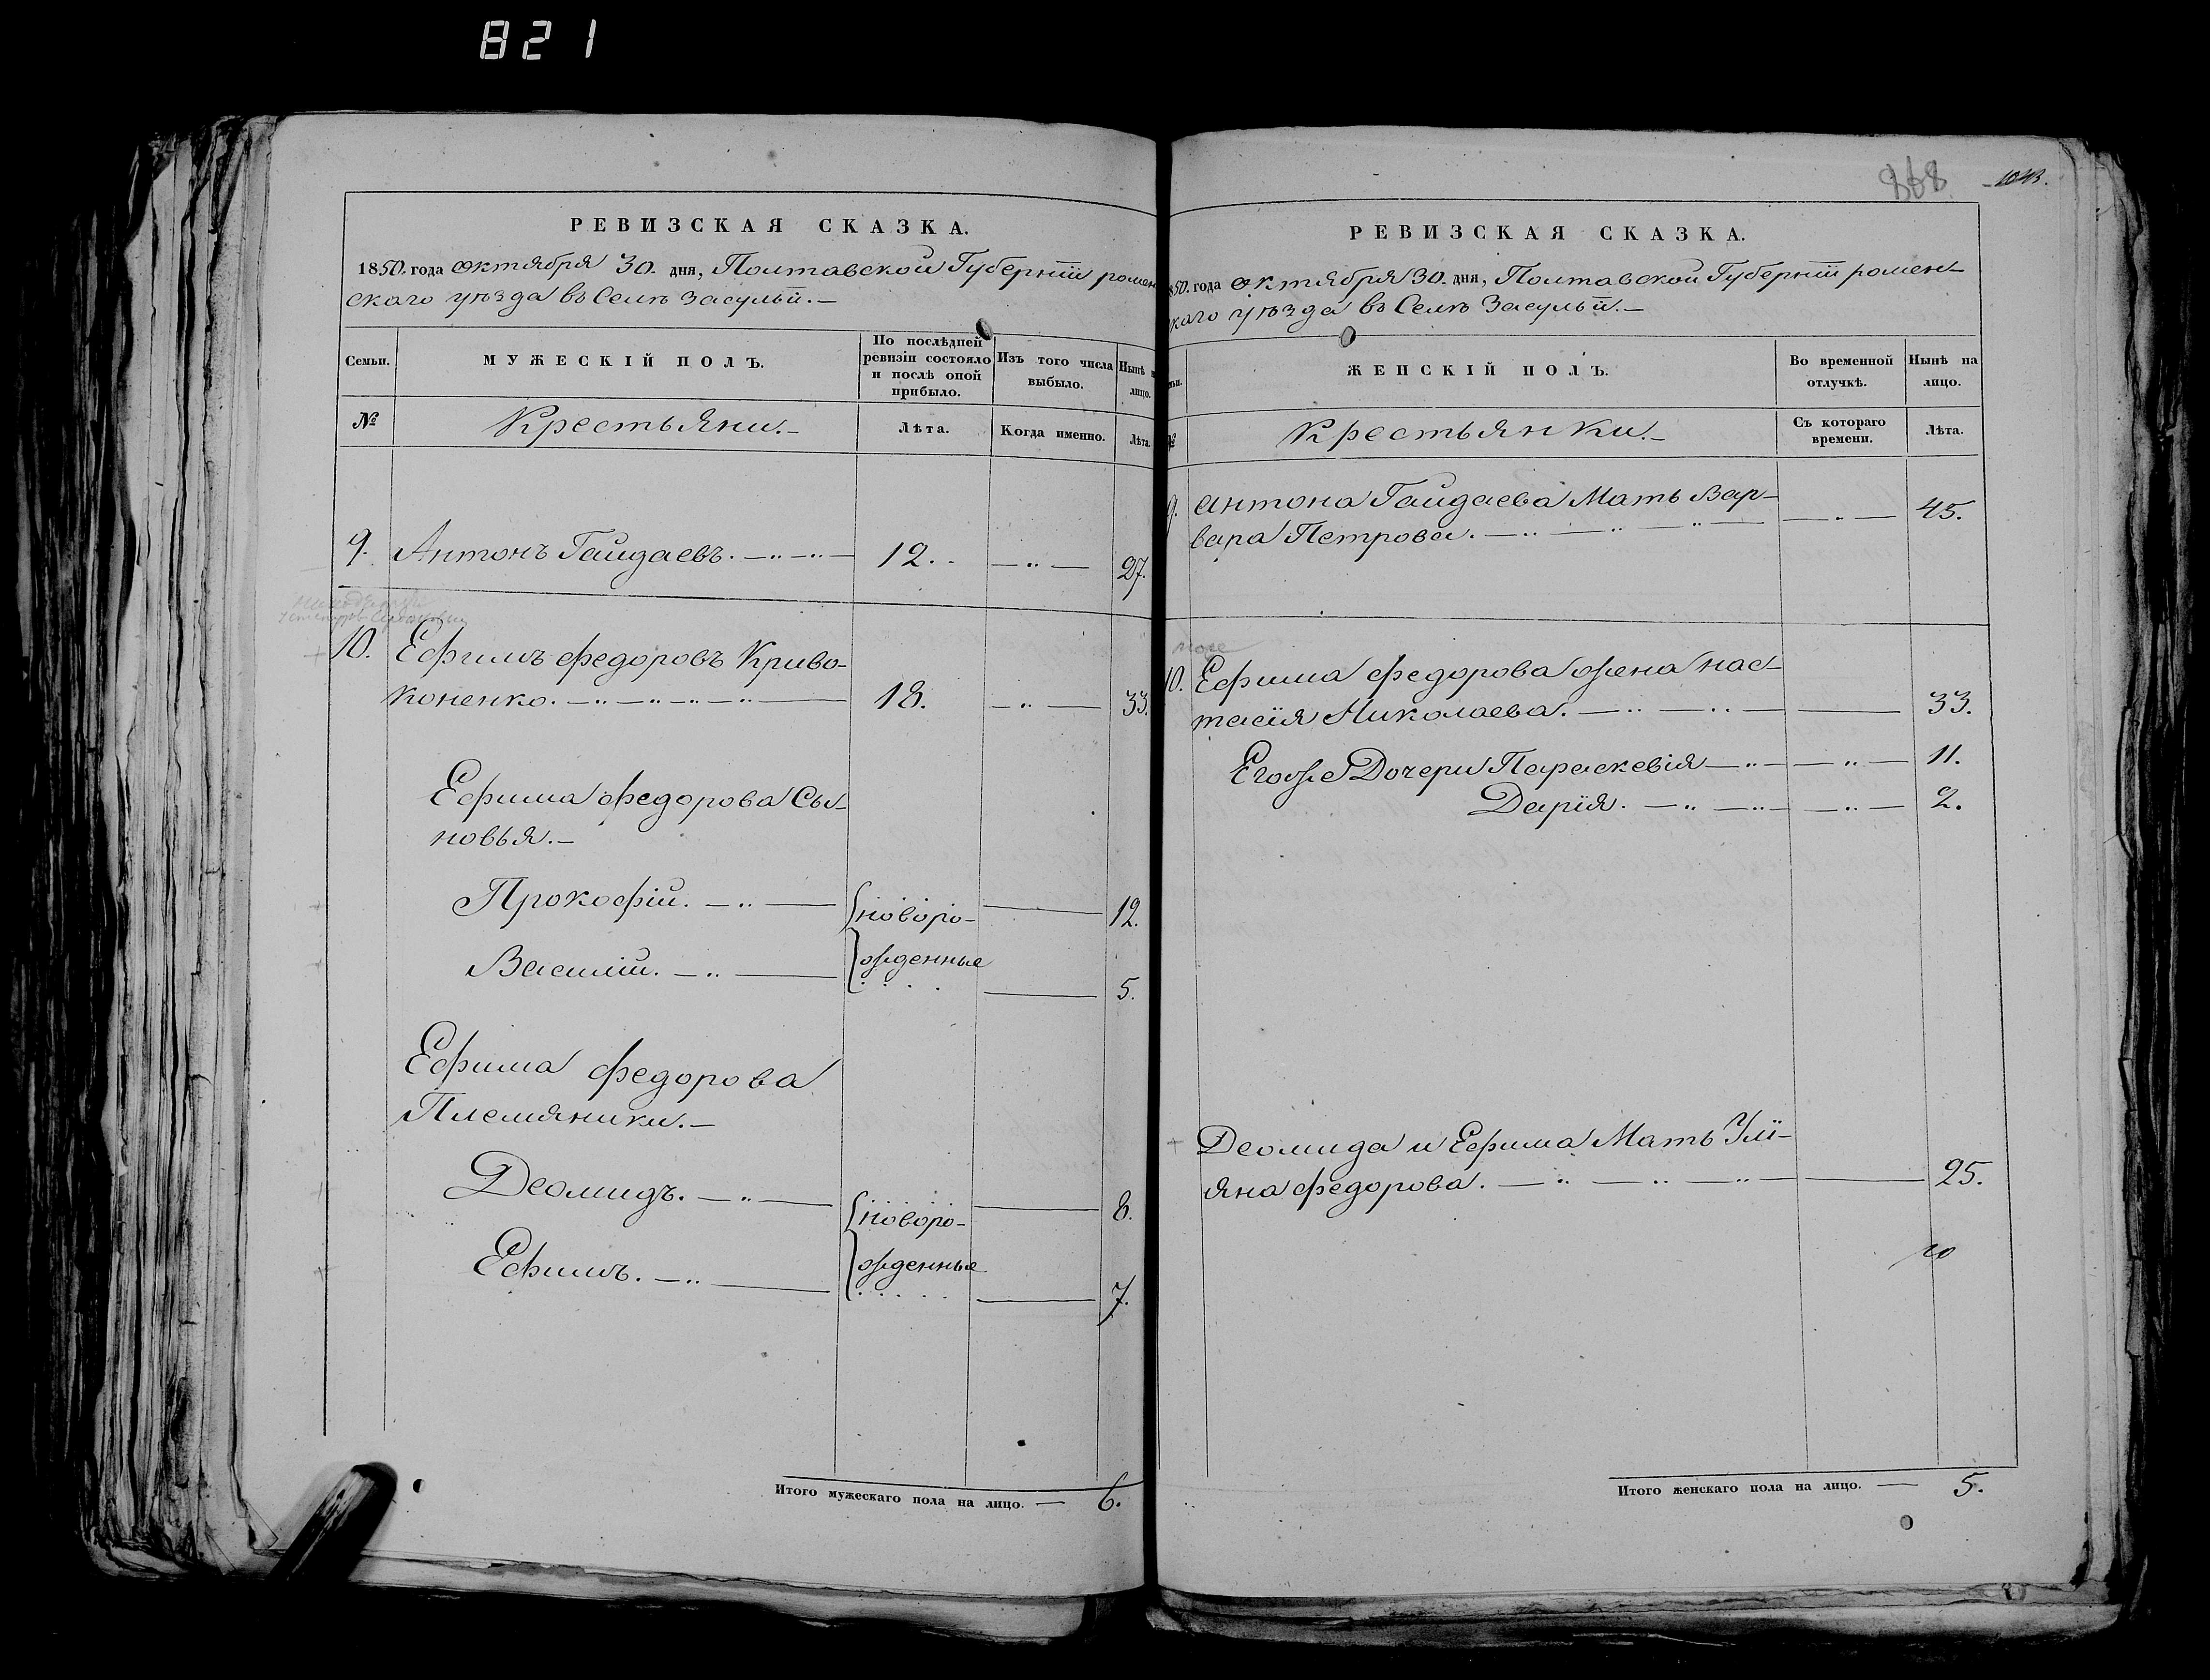 821
РЕВИЗСКАЯ СКАЗКА.
1850. года октября 30. дня, Полтавской Губерніи ромен
скаго уѣзда въ Селѣ Засульи.—
Семьи.
МУЖЕСКІЙ ПОЛЪ.
По послѣдней
ревизіи состояло
и послѣ оной
прибыло.
Изъ того числа
выбыло.
Нынѣ н
лицо.
№
Крестьяни.—
Лѣта.
Когда именно.
Лѣта.
9. Антонъ Гайдаевъ. 12. 27.
10. Ефимъ Федоровъ Криво-
коненко. 18. 33.
Ефима Федорова Сы-
новья.—
Прокофій. новоро- 12.
Василій. жденные 5.
Ефима Федорова
Племяники.—
Деомидъ. новоро- 8.
Ефимъ. жденные 7.
Итого мужескаго пола на лицо. — 6.
868
1043.
РЕВИЗСКАЯ СКАЗКА.
850. года октября 30. дня, Полтавской Губерніи ромен-
каго уѣзда въ Селѣ Засульи.—
ьи.
ЖЕНСКІЙ ПОЛЪ.
Во временной
отлучкѣ.
Нынѣ на
лицо.
№
Крестьянки.—
Съ котораго
времени.
Лѣта.
9. Антона Гайдаева Мать Вар-
вара Петрова. 45.
10. Ефима Федорова жена нас-
тасія Николаева. 33.
Егоже Дочери Параскевія 11.
Дарія. 2.
Деомида и Ефима Мать Улі-
яна Федорова. 25.
Итого женскаго пола на лицо. — 5.